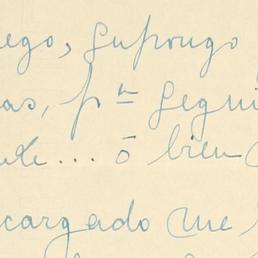 ego, supongo
as, pª segui
te.... ó bien
cargado me